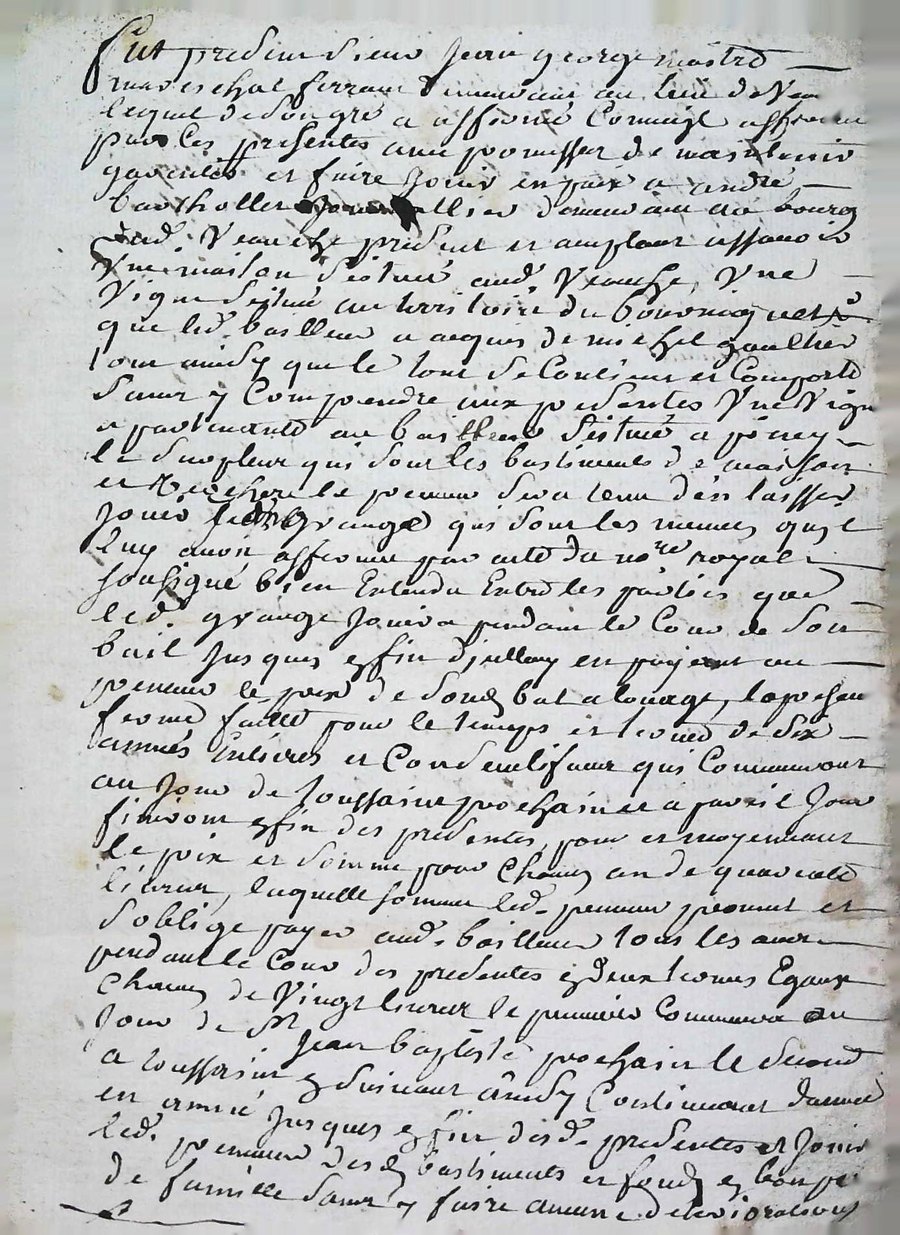 Fut present sieur Jean george maistre
mareschal ferrant demeurant au lieu de Vea
lequel de son gré a affermé Comme il afferme
par Ces presentes avec promesse de maintenir
garentir et faire Jouir en paix a andré
bartholler allier demeurant au bourg
dud. Veauche present et acceptant assavoir
Une maison scituée aud. Veauche, Une
Vigne scituée au territoire du
que led. bailleur a acquis de michel gaultier
tout ainsy que le tout se Contient et Comporte
sans y Comprendre aux presentes Une Vigne
apartenante au bailleur scituée a
le qui sont les bastiments de maison
et le preneur sera tenu den laisser
Jouir led. grange qui sont les mesmes quil
luy avoit affermé par acte du nore royal
sousigné bien Entendu Entre les parties que
led. grange Jouira pendant le Cour de son
bail Jusques a fin djcelluy en payant au
preneur le prix de sond. bail a louage, la presente
ferme faitte pour le temps et terme de six
années Entieres et Consecutifves qui Commenceront
au Jour de Toussaint prochain et a pareil Jour
finiront a fin des presentes, pour et moyennant
le prix et somme pour Chacun an de quarente
livres, laquelle somme led. preneur promet et
s'oblige payer aud. bailleur tous les ans
pendant le Cour des presentes en Deux termes Egaux
Chacun de Vingt livres le premier Commencera au
Jour de St
Jean baptiste prochain le second
a toussaint en suivant ainsy Continuant dannée
en année Jusques a fin desd. presentes et Jouir
led. preneur desd. bastiments et fonds en bon pere
de famille sans y faire aucune deteriorations